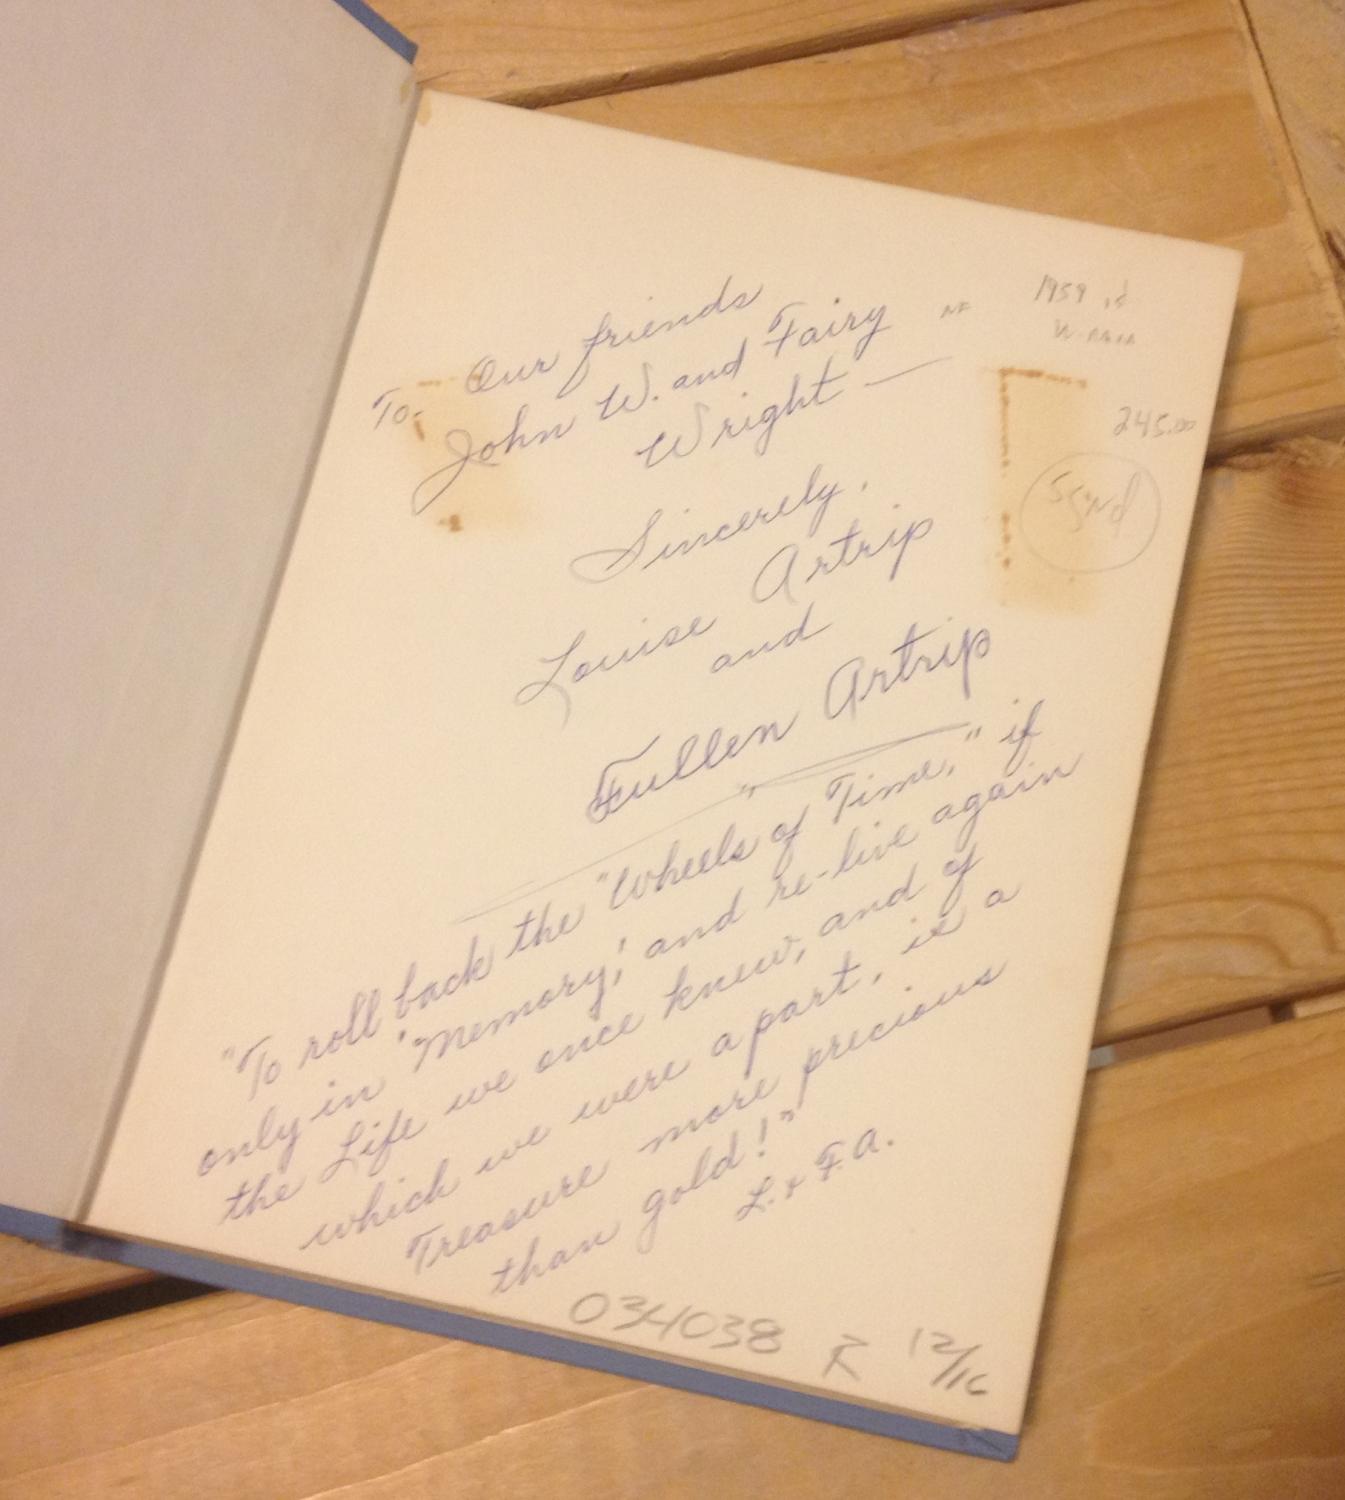 To Our friends
John W. and Fairy
Wright —
NF
1959
245.00
Sgnd
Sincerely,
Louise Artrip
and
Fullen Artrip
"To roll back the "Wheels of Time," if
only in 'Memory,' and re-live again
the Life we once knew, and of
which we were a part, is a
Treasure more precious
than gold!"
L. & F. A.
034038 R 12/16